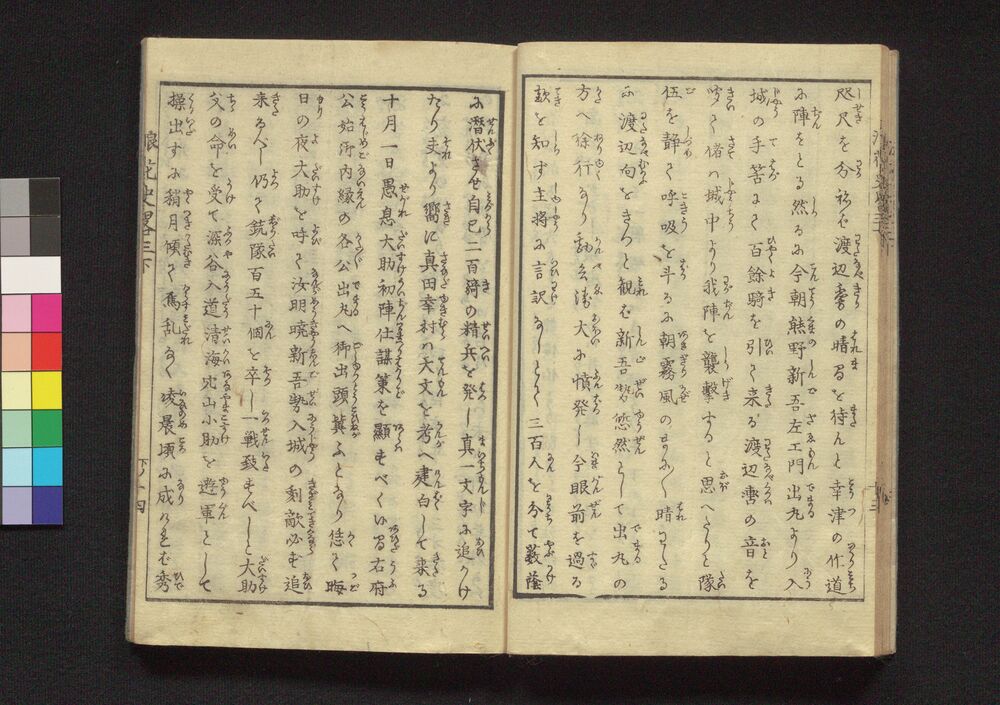 咫尺を分ねど渡辺雲の晴るを待んと幸津の作道
に陣をとる然るに今朝熊野新吾左エ門出丸より入
城の手筈にて百餘騎を引て来る渡辺轡の音を
呼て偖は城中より我陣を襲撃すると思へたりと隊
伍を静て呼吸を斗るに朝霧風のまにまに晴わたる
に渡辺向をきつと観ば新吾勢悠然として出丸の
方へ徐行なり大に憤発し今眼前を過る
敵を知ず主将に言訳なしとて三百人を分て藪蔭
に潜伏させ自己二百騎の精兵を発し真一文字に追かけ
たり夫より嚮に真田幸村は天文を考へ建白して来る
十月一日愚息大助初陣仕謀策を顕すべく候間右府
公始御内縁の各公出丸へ御出頭冀ふとなり恁て晦
日の夜大助を呼て汝明暁新吾勢入城の刻敵必ず追
来るべし仍て銃隊百五十個を卒し一戦致すべしと大助
父の命を受て深谷入道清海穴山小助を遊軍として
操出すに稍月傾て蔦乱なく凌晨頃に成ければ秀
浪花史畧三下
下ノ十四